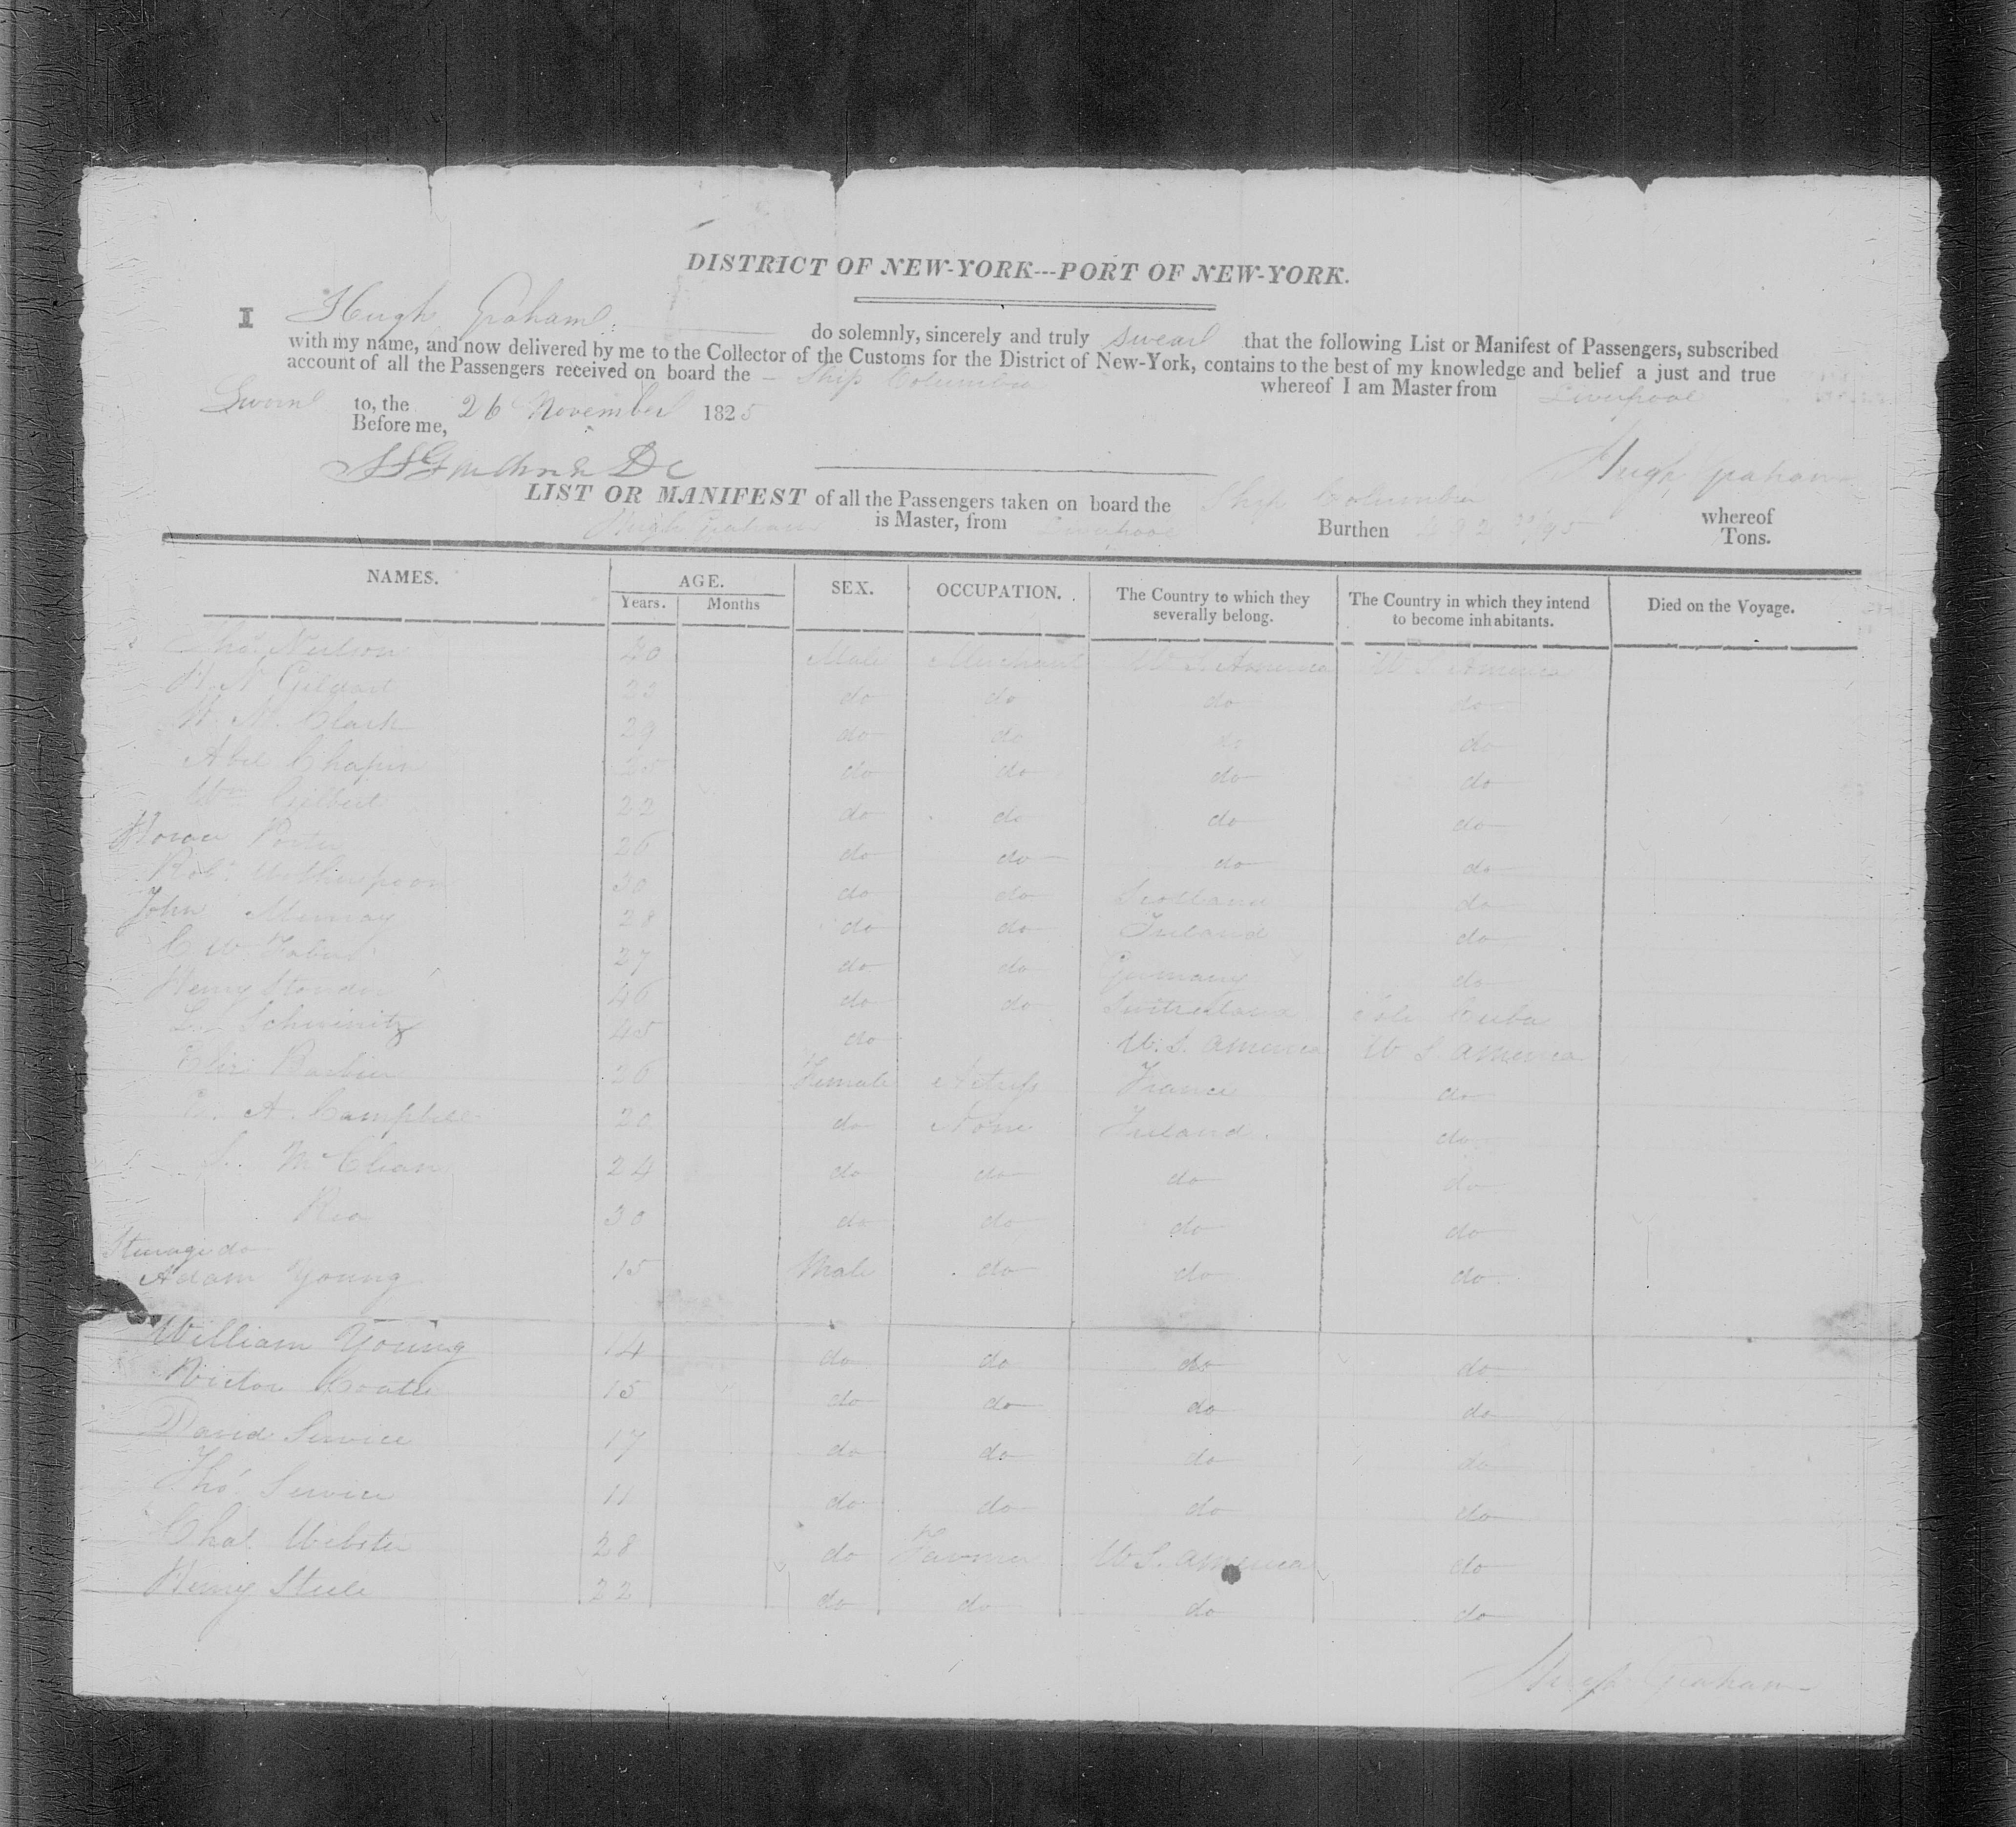 DISTRICT OF NEW-YORK---PORT OF NEW-YORK.
I Hugh Graham do solemnly, sincerely and truly swear that the following List or Manifest of Passengers, subscribed
with my name, and now delivered by me to the Collector of the Customs for the District of New-York, contains to the best of my knowledge and belief a just and true
account of all the Passengers received on board the Ship Columbia whereof I am Master from Liverpool
Sworn to, the 26 November 1825
Before me,
Hugh Graham
LIST OR MANIFEST of all the Passengers taken on board the Ship Columbia whereof
Hugh Graham is Master, from Liverpool Burthen Tons.
NAMES. AGE. SEX. OCCUPATION. The Country to which they severally belong. The Country in which they intend to become inhabitants. Died on the Voyage.
Years. Months
Thos. Neilson 40 Male Merchant U S America U S America
23 do do do do
Clark 29 do do do do
Abel Chapin 25 do do do do
Wm Gilbert 22 do do do do
Horace Porter 26 do do do do
Robt. Witherspoon 30 do do Scotland do
John Murray 28 do do Ireland do
C W Faber 27 do do Germany do
Henry 46 do do Switzerland Isle Cuba
Schweinitz 45 do U.S. America U S America
Barbier 26 Female Actress France do
A. Campbell 20 do None Ireland. do
McClean 24 do do do do
Rea 30 do do do do
Steerage do
Adam Young 15 Male do do do
William Young 14 do do do do
Victor Coates 15 do do do do
David Service 17 do do do do
Thos. Service 11 do do do do
Chas. Webster 28 do Farmer U S. America do
Henry Steele 22 do do do do
Hugh Graham